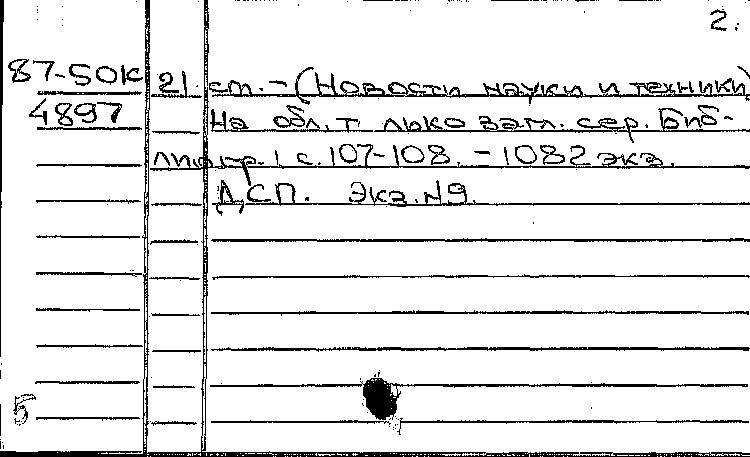 2.
87-50К 21 см. - (Новости науки и техники)
4897 На обл. т лько заг. сер. Биб-
лиогр. с. 107-108. - 1082 экз.
ДСП. Экз. №9.
5